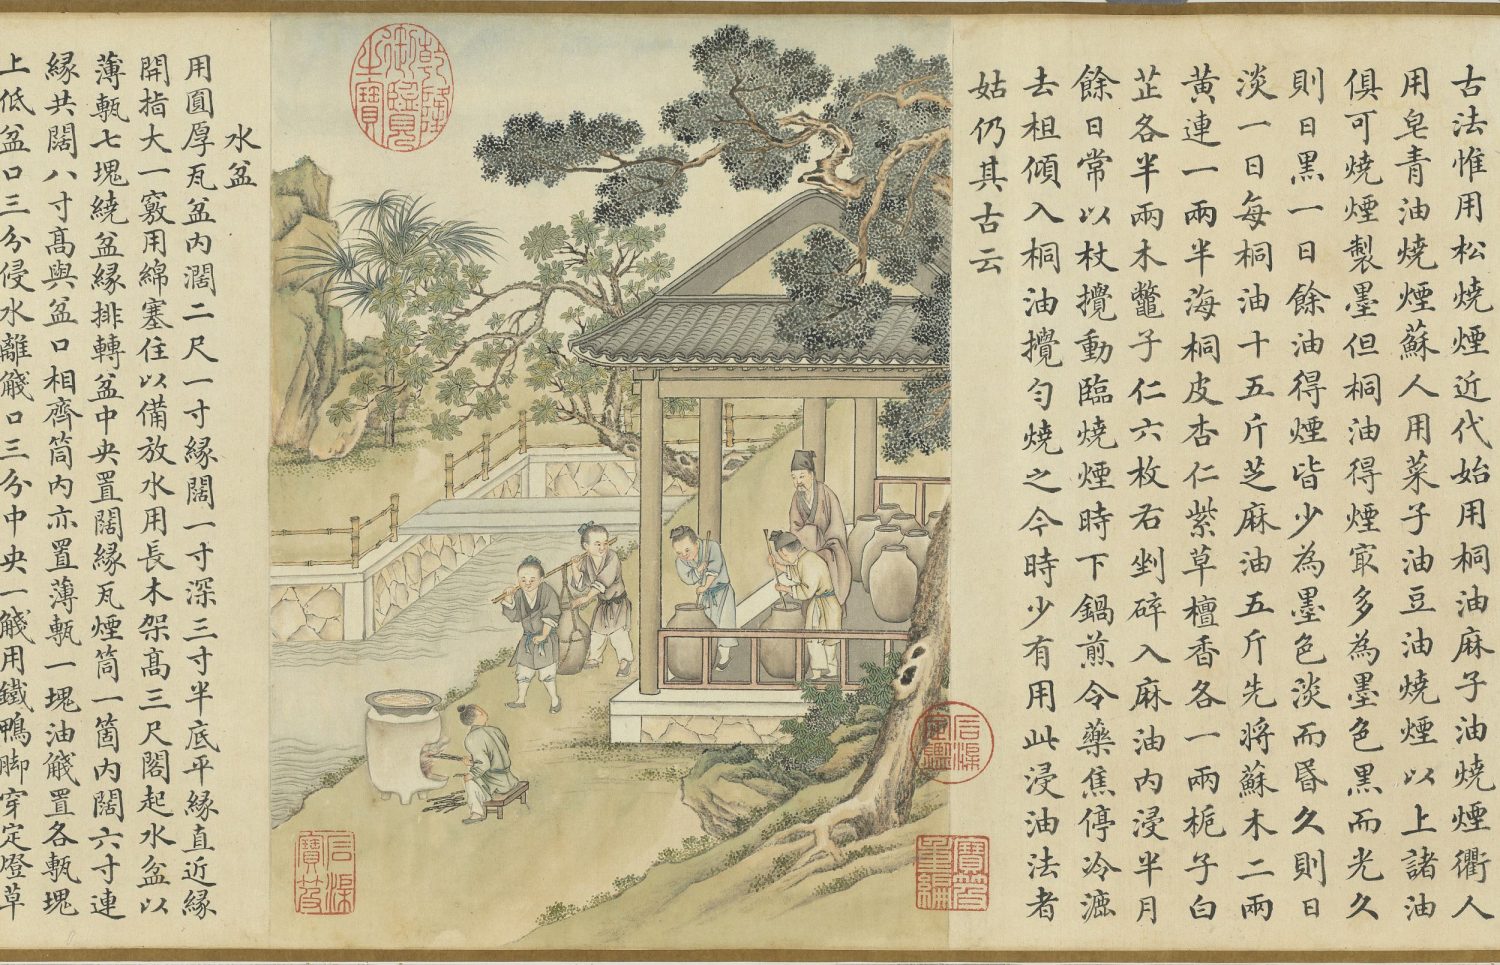 古法惟用松燒煙近代始用桐油麻子油燒煙衢人
用皂青油燒煙蘇人用菜子油豆油燒煙以上諸油
俱可燒煙製墨但桐油得煙㝡多為墨色黑而光久
則日黑一日餘油得煙皆少為墨色淡而昬久則日
淡一日每桐油十五斤芝麻油五斤先將蘇木二兩
黃連一兩半海桐皮杏仁紫草檀香各一兩梔子白
芷各半兩木鼈子仁六枚右剉碎入麻油內浸半月
餘日常以杖攪動臨燒煙時下鍋煎令藥焦停冷漉
去柤傾入桐油攪勻燒之今時少有用此浸油法者
姑仍其古云
乾隆御覽之寶
石渠定鑑
寶笈重編
石渠寶笈
水盆
用圓厚瓦盆內濶二尺一寸緣闊一寸深三寸半底平緣直近緣
開指大一竅用綿塞住以備放水用長木架髙三尺閣起水盆以
薄甎七塊繞盆緣排轉盆中央置闊緣瓦煙筒一箇內闊六寸連
緣共闊八寸髙與盆口相齊筒內亦置薄甎一塊油㼾置各甎塊
上低盆口三分侵水離㼾口三分中央一㼾用鐵鴨脚穿定燈草